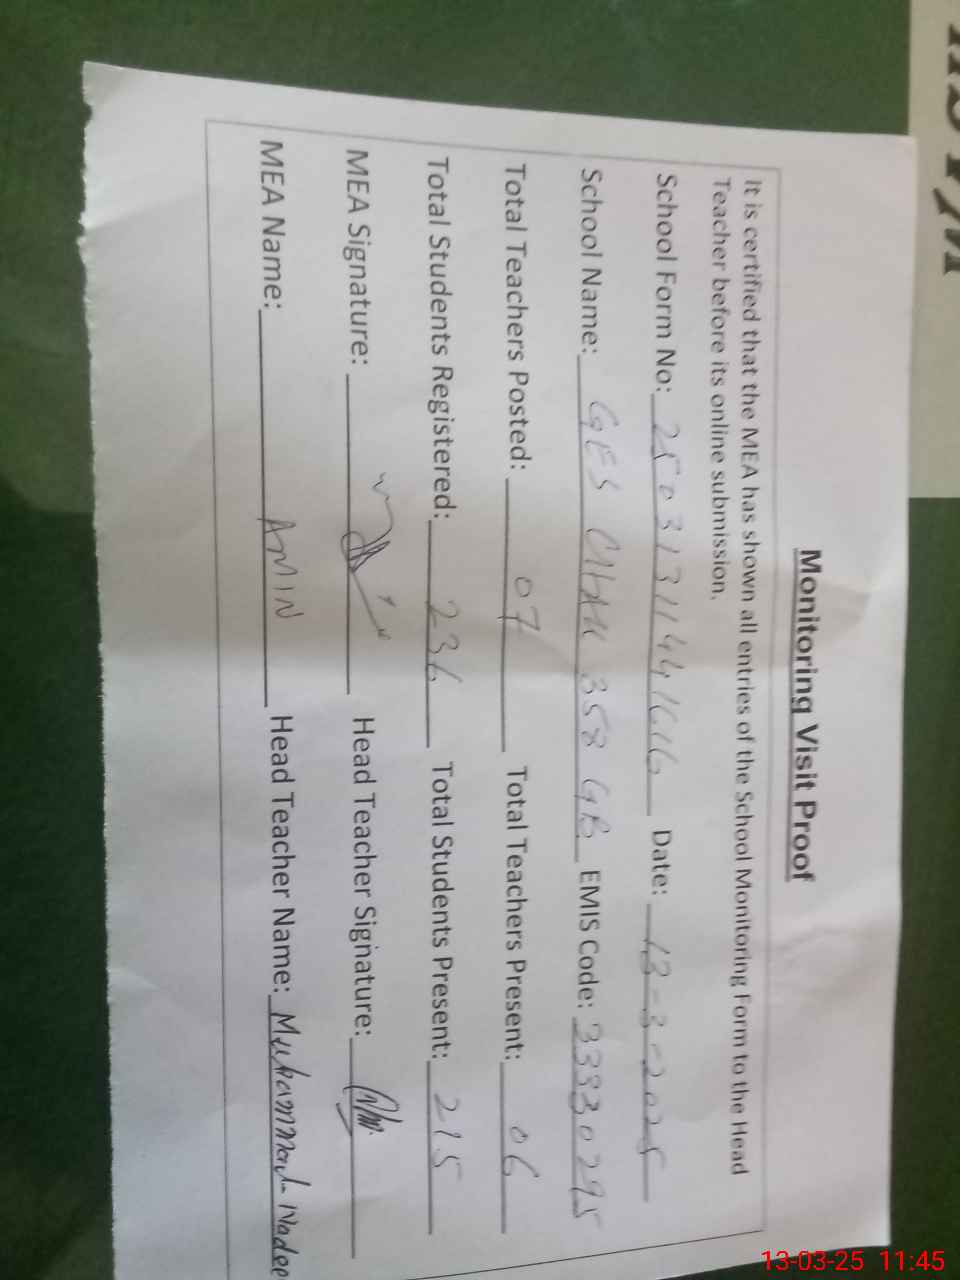 Monitoring Visit Proof
It is certified that the MEA has shown all entries of the School Monitoring Form to the Head
Teacher before its online submission.
School Form No: 250313114441616 Date: 13-3-2025
School Name: GES Chak 358 GB EMIS Code: 33330295
Total Teachers Posted: 07 Total Teachers Present: 06
Total Students Registered: 236 Total Students Present: 215
MEA Signature: Head Teacher Signature:
MEA Name: AMIN Head Teacher Name: Muhammad Nadee
13-03-25 11:45